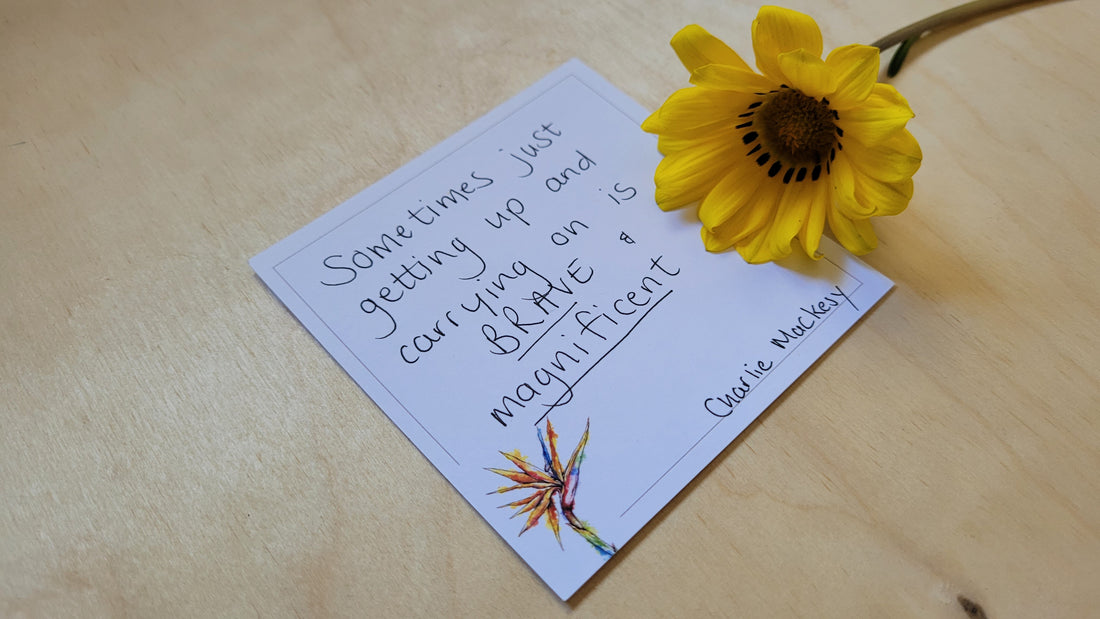 Sometimes just
getting up and
carrying on is
BRAVE &
magnificent
Charlie Mackesy